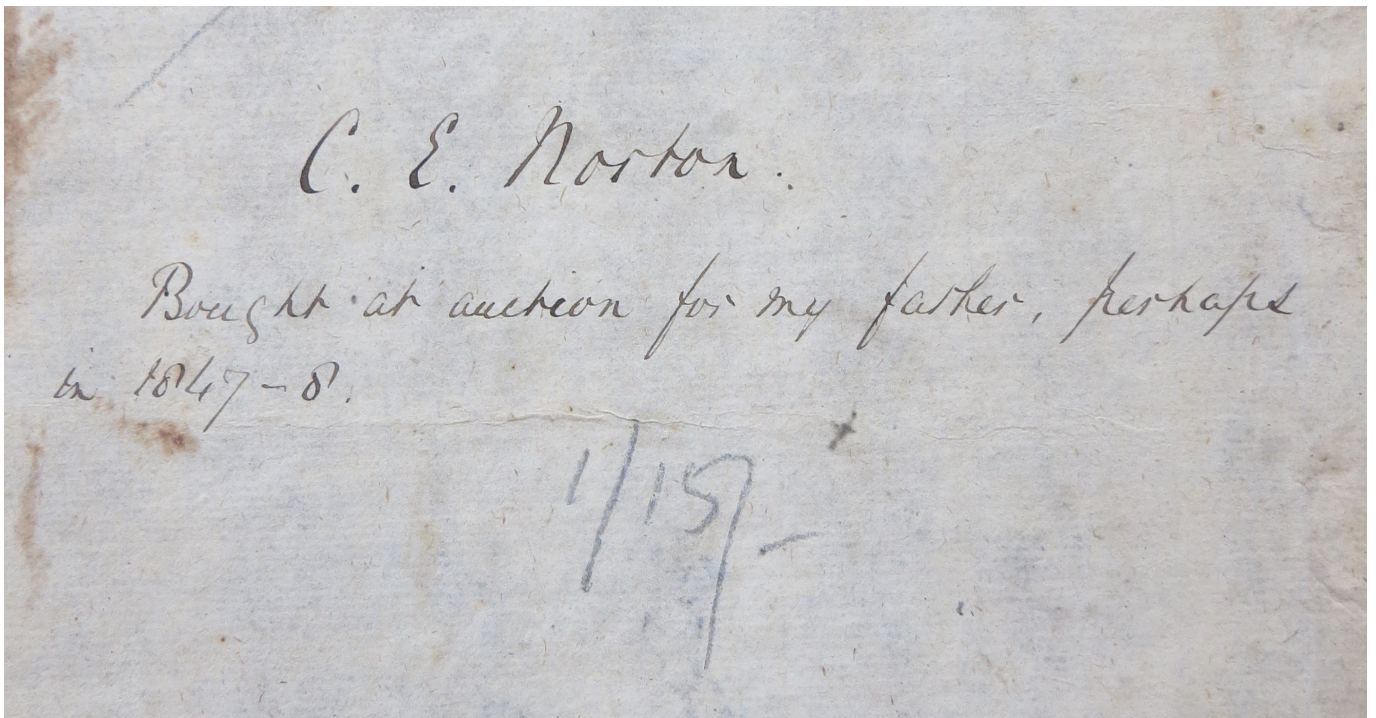 C. E. Norton.
Bought at auction for my father, perhaps
in 1847-8.
1/15/-